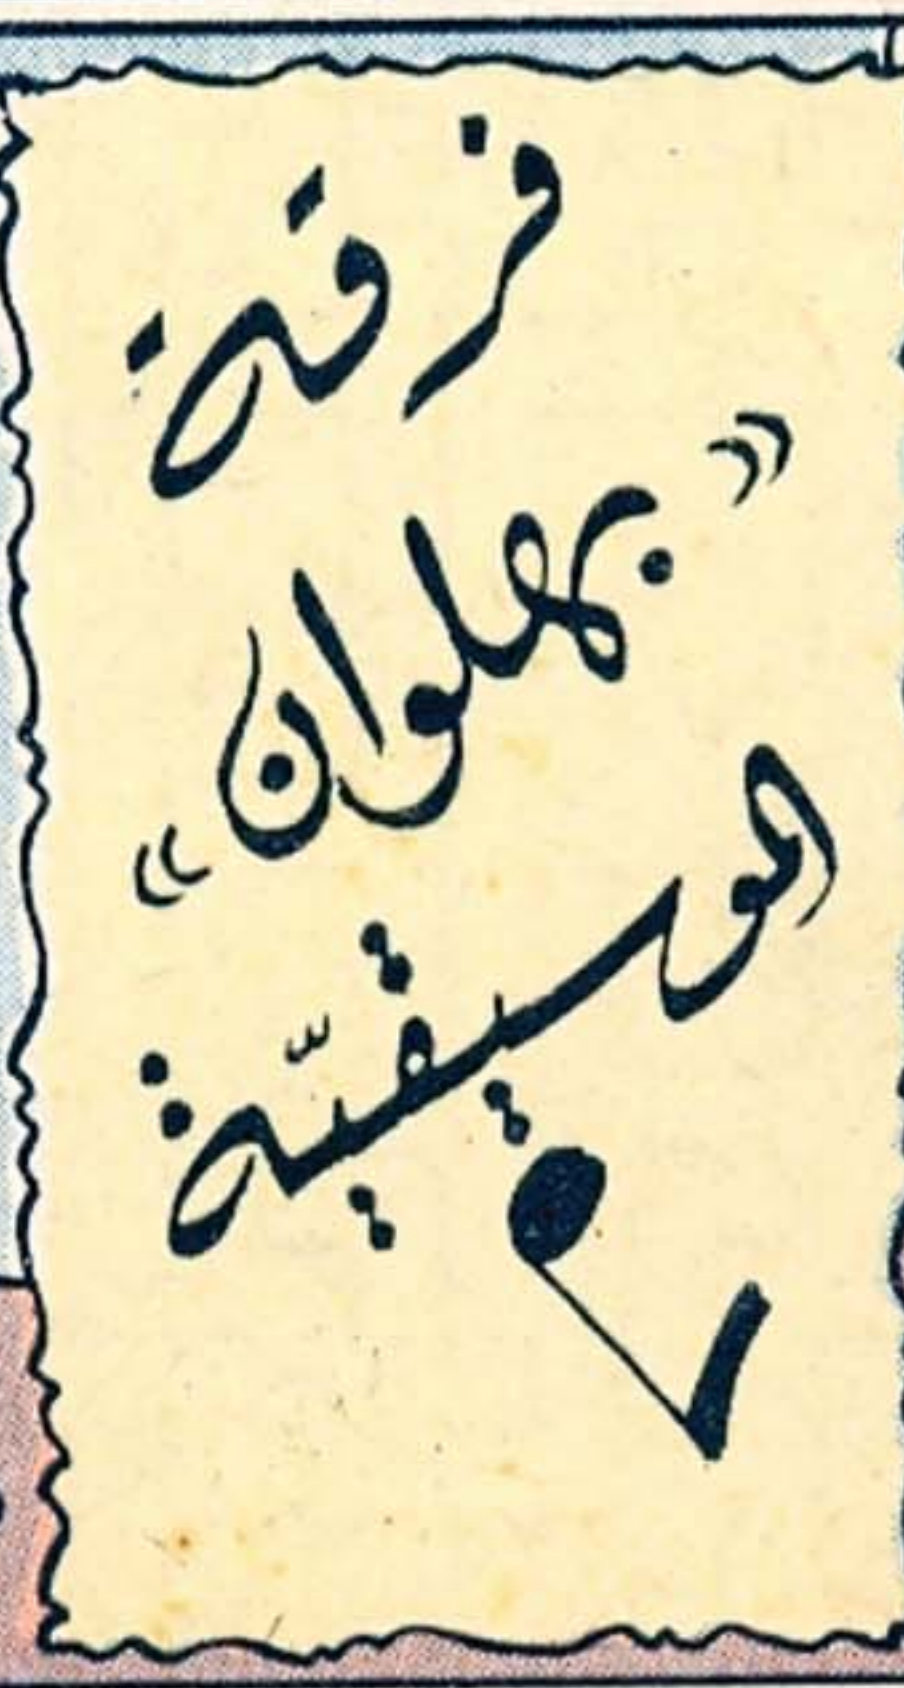 فرقة
«بهلوان»
الموسيقيّة